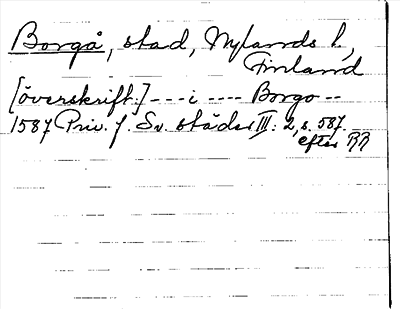 Borgå, stad, Nylands l.,
Finland
[överskrift:] --- i ---- Borgo --
1587 Priv. f. Sv. städer III: 2, s. 587.
efter RR